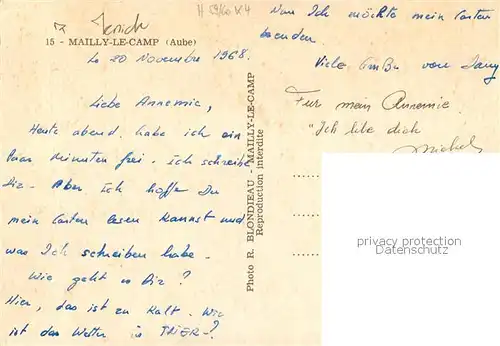 H 59/60 K4
15 - MAILLY-LE-CAMP (Aube)
Le 20 Novembre 1968.
Liebe Annemie,
Heute abend. habe ich ein
Paar Minuten frei. ich schreibe
Dir. Aber ich hoffe Du
mein Carten lesen Kannst und
was Ich schreiben habe.
Wie geht es Dir?
Hier, das ist zu Kalt. Wie
ist das Wetter in TRIER-?
Photo R. BLONDIEAU - MAILLY-LE-CAMP
Reproduction interdite
Nun Ich möchte mein Carten
beenden.
Viele Gruße von
Fur mein Annemie
"Ich libe dich
Michel
privacy protection
Datenschutz